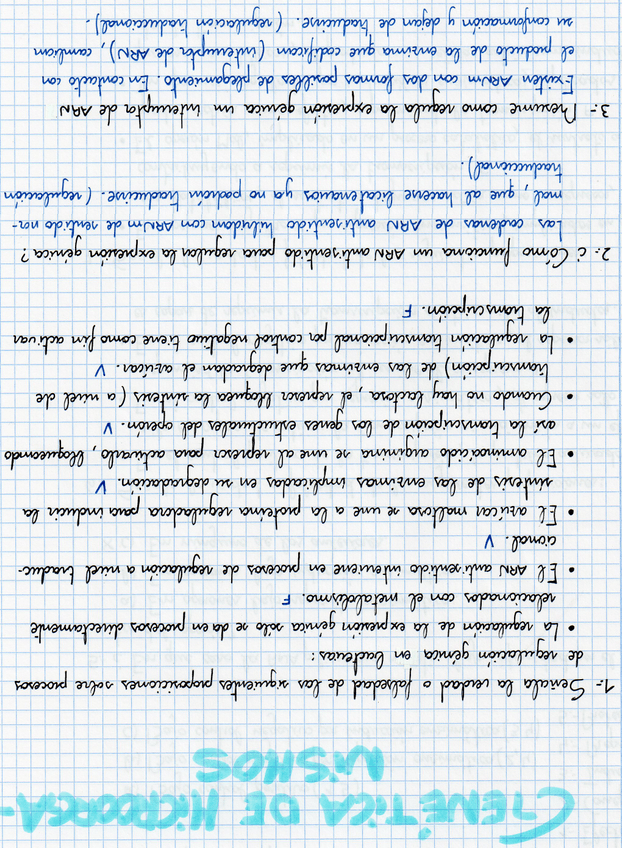 GENÉTICA DE MICROORGA-
NISMOS
1.- Señala la verdad o falsedad de las siguientes proposiciones sobre procesos
de regulación génica en bacterias:
• La regulación de la expresión génica sólo se da en procesos directamente
relacionados con el metabolismo. F
• El ARN antisentido interviene en procesos de regulación a nivel traduc-
cional. V
• El azúcar maltosa se une a la proteína reguladora para inducir la
síntesis de las enzimas implicadas en su degradación. V
• El aminoácido arginina se une al represor para activarlo, bloqueando
así la transcripción de los genes estructurales del operón. V
• Cuando no hay lactosa, el represor bloquea la síntesis (a nivel de
transcripción) de las enzimas que degradan el azúcar. V
• La regulación transcripcional por control negativo tiene como fin activar
la transcripción. F
2.- ¿Cómo funciona un ARN antisentido para regular la expresión génica?
Las cadenas de ARN antisentido hibridan con ARNm de sentido nor-
mal, que al hacerse bicatenarios ya no podrán traducirse. (regulación
traduccional).
3.- Resume como regula la expresión génica un interruptor de ARN
Existen ARNm con dos formas posibles de plegamiento. En contacto con
el producto de la enzima que codifican (interruptor de ARN), cambian
su conformación y dejan de traducirse. (regulación traduccional).